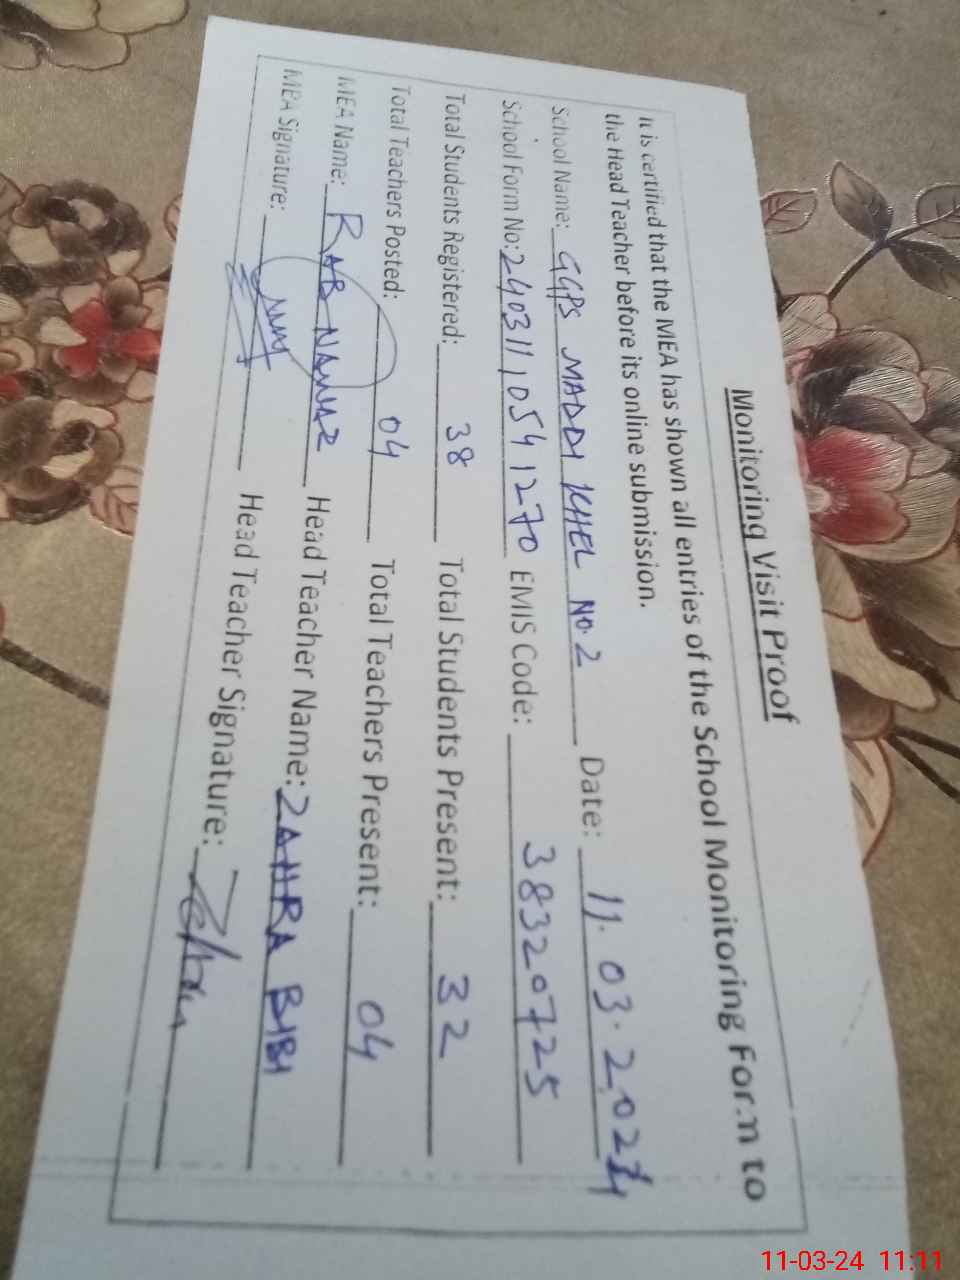 Monitoring Visit Proof
It is certified that the MEA has shown all entries of the School Monitoring Form to
the Head Teacher before its online submission.
School Name: GGPS MADDI KHEL NO.2 Date: 11.03.2024
School Form No: 240311,0541270 EMIS Code: 38320725
Total Students Registered: 38 Total Students Present: 32
Total Teachers Posted: 04 Total Teachers Present: 04
MEA Name: RAB NAWAZ Head Teacher Name: ZAHRA BIBI
MEA Signature: Head Teacher Signature:
11-03-24 11:11